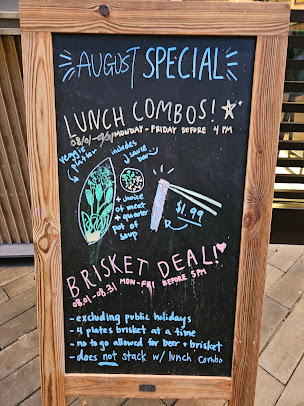 AUGUST SPECIAL
LUNCH COMBOS!
08/01-08/31 MONDAY - FRIDAY BEFORE 4 PM
veggie platter
includes sauce bar
+ choice of meat
+ quarter pot of soup
$1.99
BRISKET DEAL!
08.01-08.31 MON-FRI BEFORE 5PM
- excluding public holidays
- 4 plates brisket at a time
- no to go allowed for beer + brisket
- does not stack w/ lunch combo